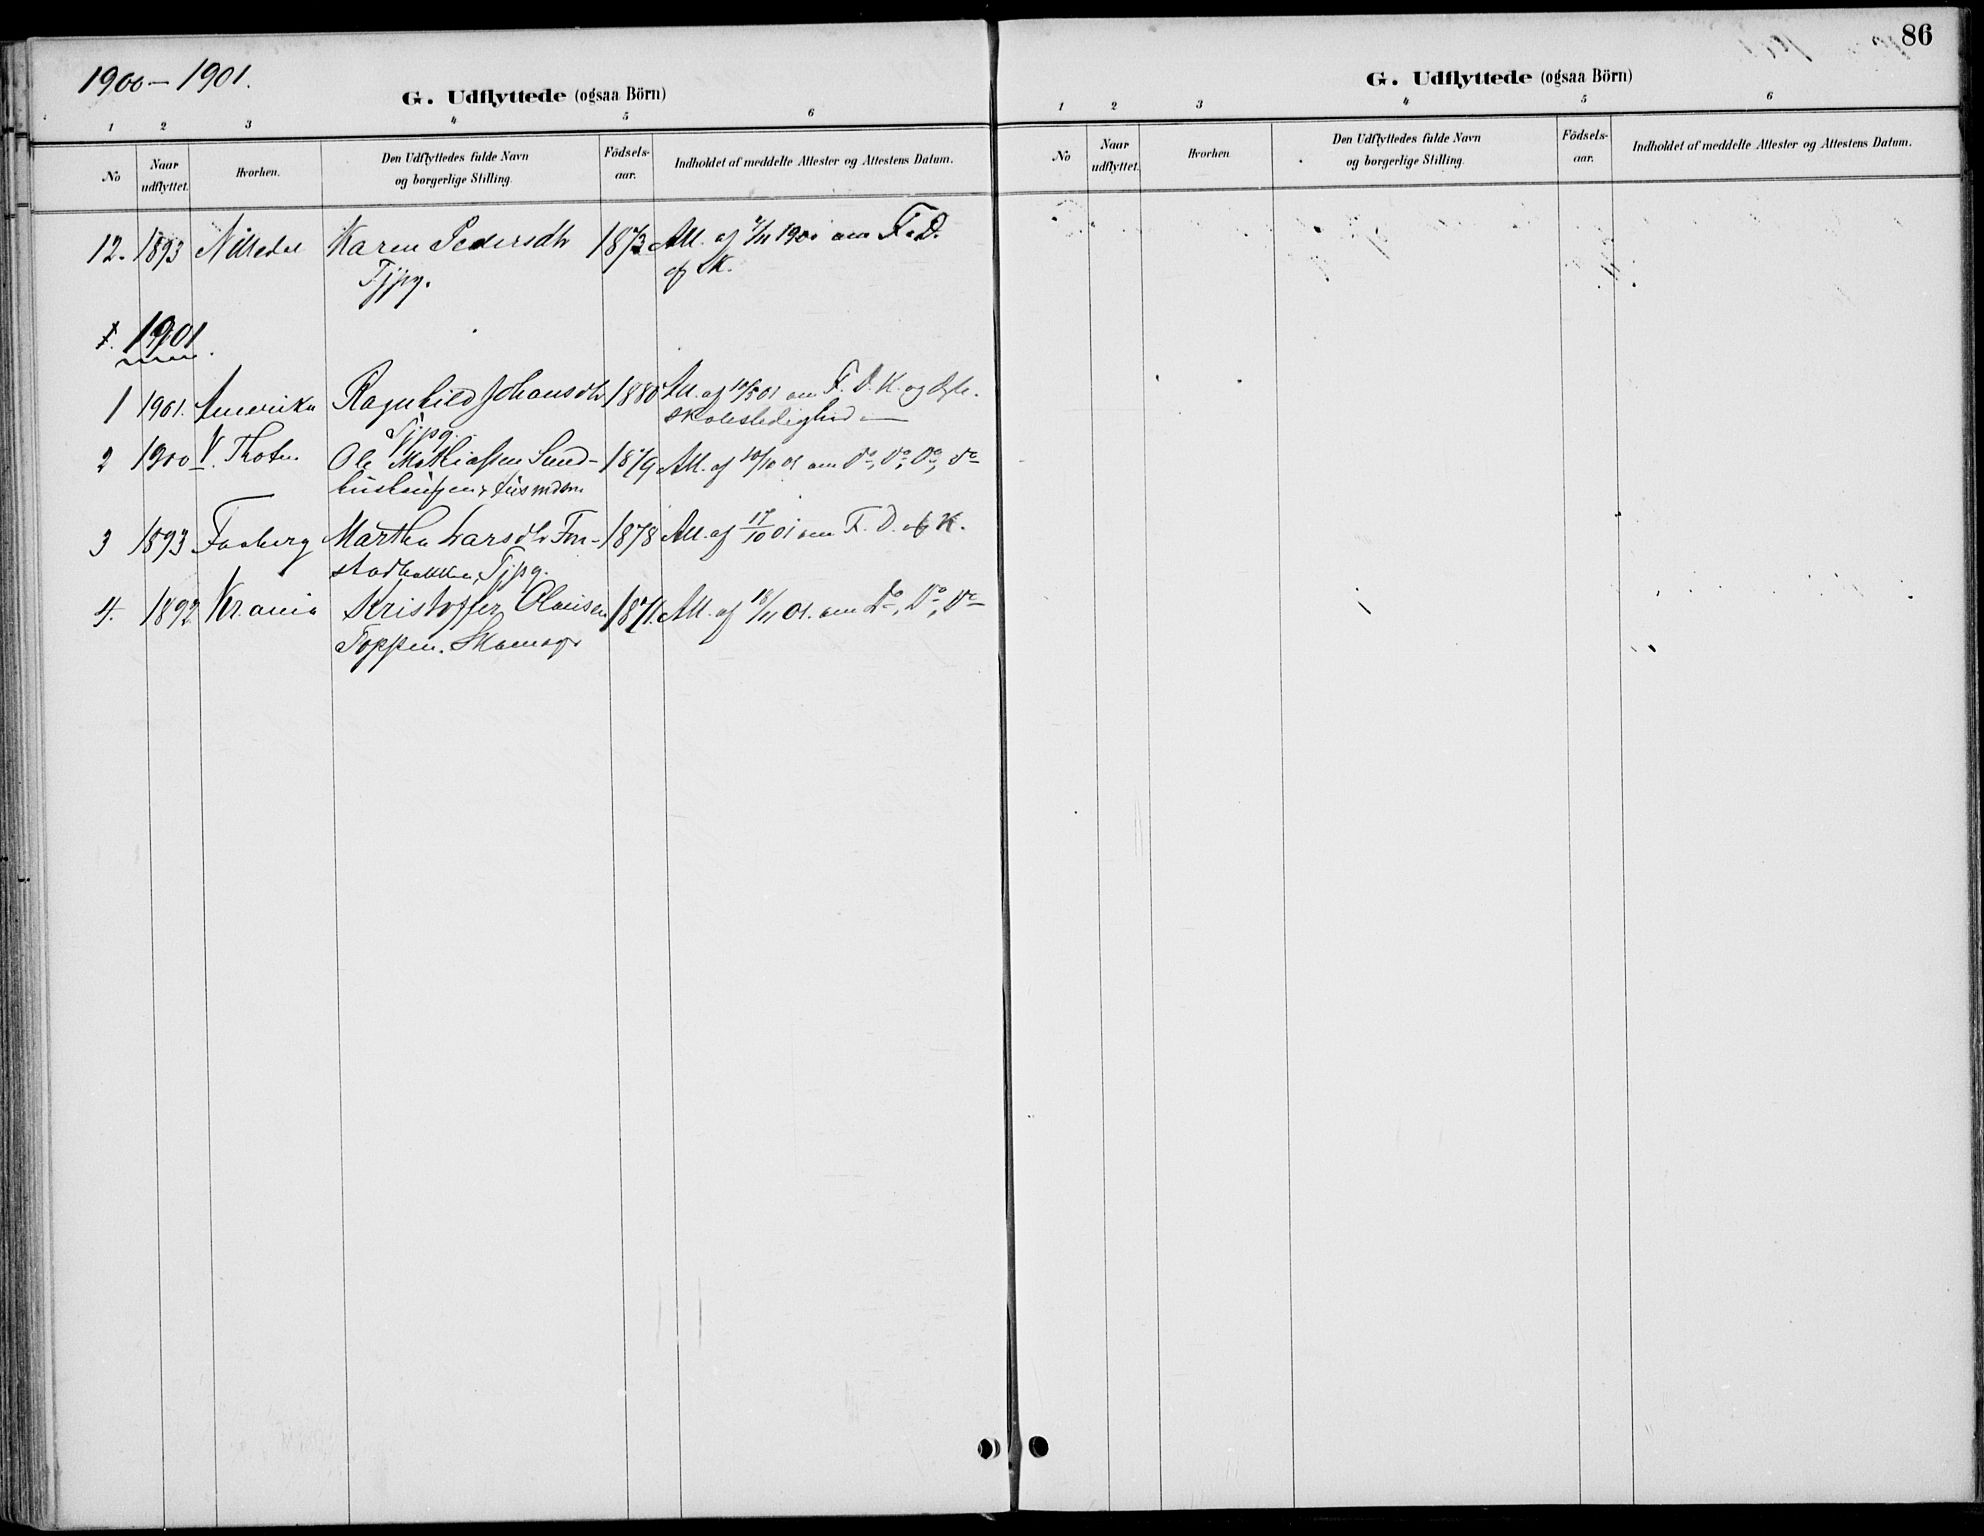 1900–1901.
G. Udflyttede (ogsaa Börn)
1 2 3 4 5 6
No
Naar udflyttet.
Hvorhen.
Den Udflyttedes fulde Navn
og borgerlige Stilling.
Födsels-
aar.
Indholdet af meddelte Attester og Attestens Datum.
12. 1893 Nittedal Karen Pedersdtr 1873 Att. af /11 1900 om F. D.
Tjpg. af K.
1901.
1 1901. Amerika Ragnhild Johansdtr 1880 Att. af 10/5 01 om F. D. K. og Ægte-
Tjpg. skabsledighed
2 1900 V. Thoten Ole Mathiassen Sund- 1879 Att. af 10/10 01 om Do, Do, Do, Do
3 1893 Faaberg Martha Larsdtr Fon- 1878 Att. af 17/10 01 om F. D. og K.
stadbakken, Tjpg.
4. 1892 Kr.ania Kristoffer Olausen 1871. Att. af 18/11 01. om Do, Do, Do
Toppen. Skomager
86
G. Udflyttede (ogsaa Börn)
1 2 3 4 5 6
No
Naar
udflyttet.
Hvorhen
Den Udflyttedes fulde Navn
og borgerlige Stilling.
Födsels-
aar.
Indholdet af meddelte Attester og Attestens Datum.